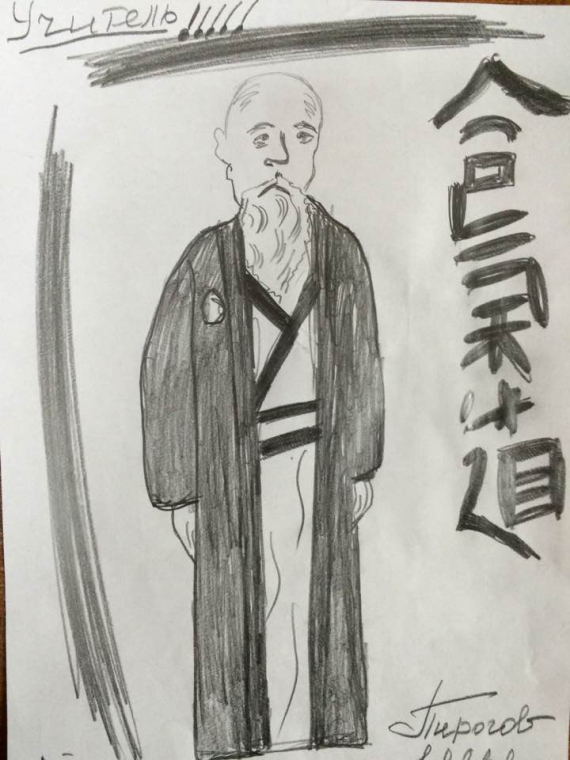 Учитель!!!!!
合气道
Пирогов